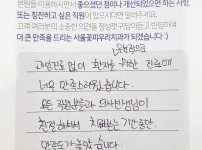 본원을 이용하시면서 좋으셨던 점이나 개선되었으면 하는 사항,
또는 칭찬하고 싶은 직원이 있으시다면 알려주세요.
고객 여러분의 소중한 의견을 정성껏 귀담아듣고 반영하여
더 큰 만족을 드리는 서울꽃피우리치과가 되겠습니다.
과잉진료 없이 환자를 위한 진료에
너무 만족스러웠습니다.
모든 직원분들과 의사선생님이
친절하셔서 치료받는 기간동안
만족도가 높았습니다.